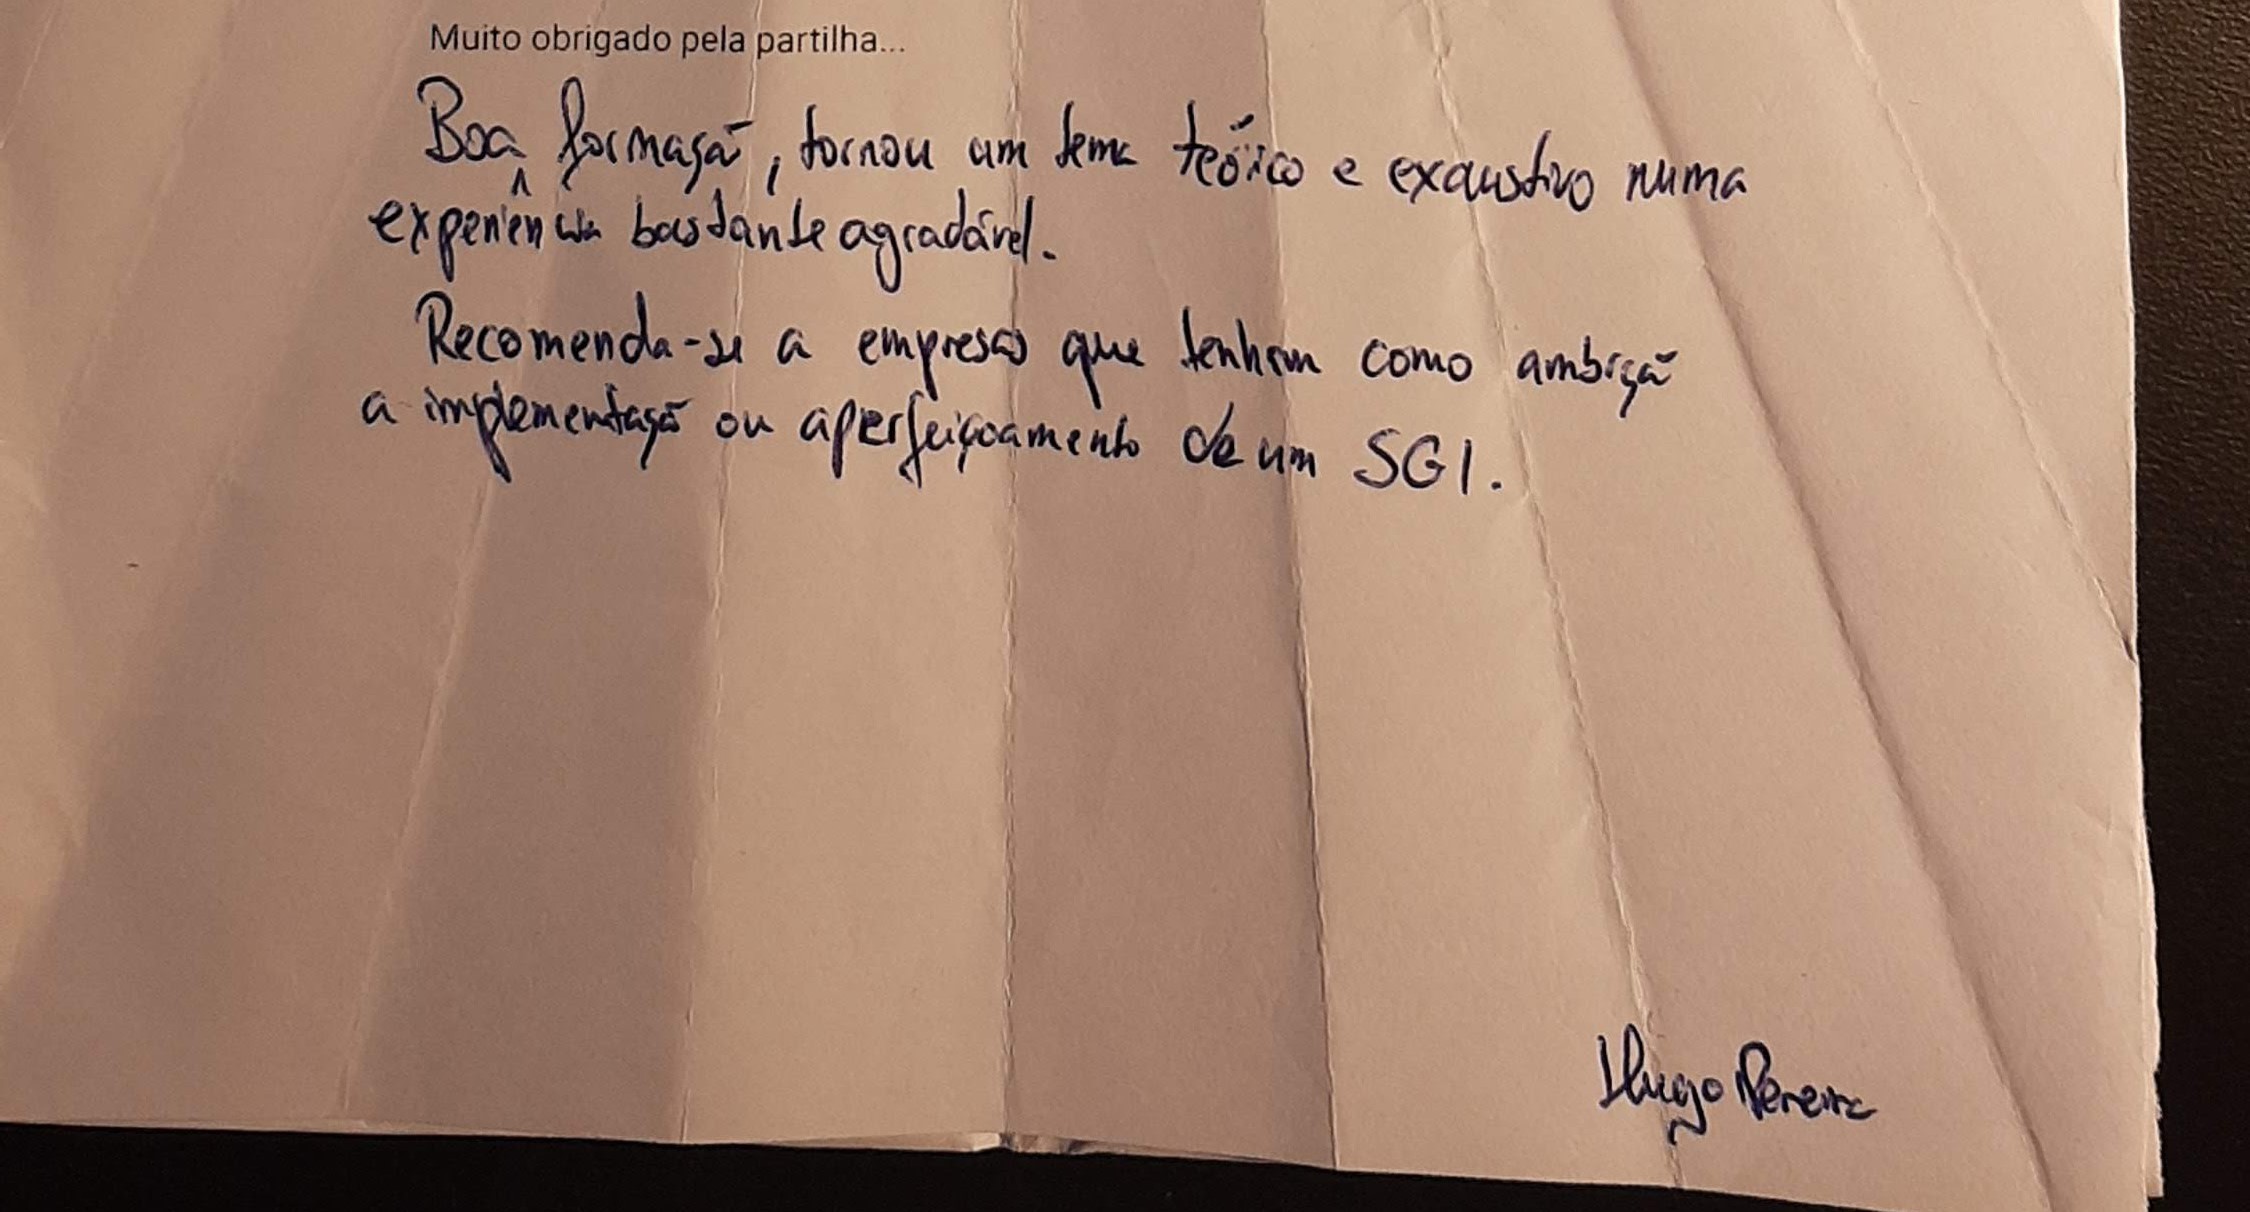 Muito obrigado pela partilha...
Boa formação, tornou um tema teórico e exaustivo numa
experiência bastante agradável.
Recomenda-se a empresas que tenham como ambição
a implementação ou aperfeiçoamento de um SGI.
Hugo Pereira